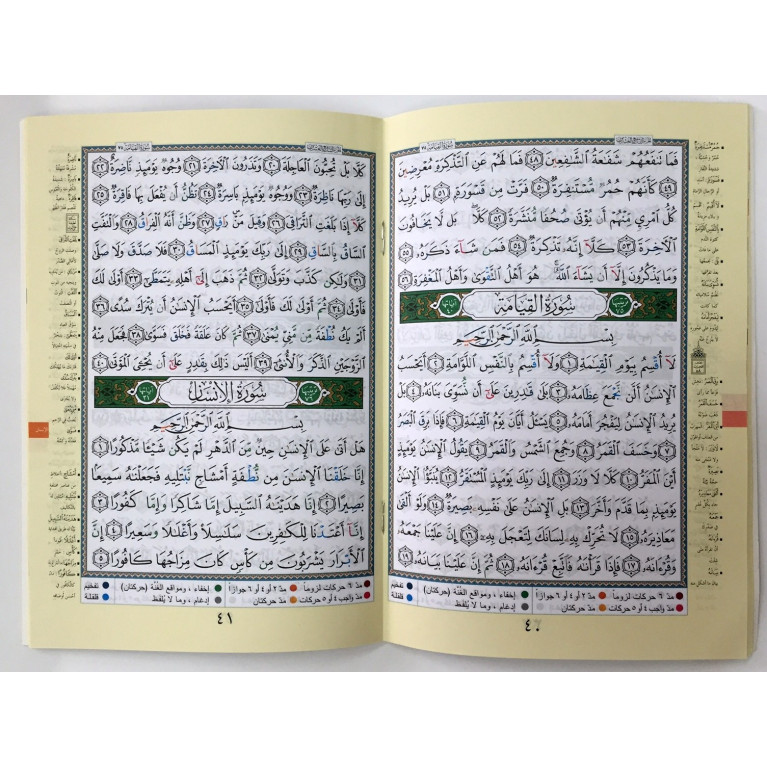 فَمَا تَنفَعُهُمْ شَفَٰعَةُ ٱلشَّٰفِعِينَ ٤٨ فَمَا لَهُمْ عَنِ ٱلتَّذْكِرَةِ مُعْرِضِينَ
٤٩ كَأَنَّهُمْ حُمُرٌ مُّسْتَنفِرَةٌ ٥٠ فَرَّتْ مِن قَسْوَرَةٍۭ ٥١ بَلْ يُرِيدُ
كُلُّ ٱمْرِئٍ مِّنْهُمْ أَن يُؤْتَىٰ صُحُفًا مُّنَشَّرَةً ٥٢ كَلَّا ۖ بَل لَّا يَخَافُونَ
ٱلْءَاخِرَةَ ٥٣ كَلَّآ إِنَّهُۥ تَذْكِرَةٌ ٥٤ فَمَن شَآءَ ذَكَرَهُۥ ٥٥
وَمَا يَذْكُرُونَ إِلَّآ أَن يَشَآءَ ٱللَّهُ ۚ هُوَ أَهْلُ ٱلتَّقْوَىٰ وَأَهْلُ ٱلْمَغْفِرَةِ ٥٦
سُورَةُ القِيَامَةِ
بِسْمِ ٱللَّهِ ٱلرَّحْمَٰنِ ٱلرَّحِيمِ
لَآ أُقْسِمُ بِيَوْمِ ٱلْقِيَٰمَةِ ١ وَلَآ أُقْسِمُ بِٱلنَّفْسِ ٱللَّوَّامَةِ ٢ أَيَحْسَبُ
ٱلْإِنسَٰنُ أَلَّن نَّجْمَعَ عِظَامَهُۥ ٣ بَلَىٰ قَٰدِرِينَ عَلَىٰٓ أَن نُّسَوِّىَ بَنَانَهُۥ ٤ بَلْ
يُرِيدُ ٱلْإِنسَٰنُ لِيَفْجُرَ أَمَامَهُۥ ٥ يَسْـَٔلُ أَيَّانَ يَوْمُ ٱلْقِيَٰمَةِ ٦ فَإِذَا بَرِقَ ٱلْبَصَرُ
٧ وَخَسَفَ ٱلْقَمَرُ ٨ وَجُمِعَ ٱلشَّمْسُ وَٱلْقَمَرُ ٩ يَقُولُ ٱلْإِنسَٰنُ يَوْمَئِذٍ
أَيْنَ ٱلْمَفَرُّ ١٠ كَلَّا لَا وَزَرَ ١١ إِلَىٰ رَبِّكَ يَوْمَئِذٍ ٱلْمُسْتَقَرُّ ١٢ يُنَبَّؤُا۟ ٱلْإِنسَٰنُ
يَوْمَئِذٍۭ بِمَا قَدَّمَ وَأَخَّرَ ١٣ بَلِ ٱلْإِنسَٰنُ عَلَىٰ نَفْسِهِۦ بَصِيرَةٌ ١٤ وَلَوْ أَلْقَىٰ
مَعَاذِيرَهُۥ ١٥ لَا تُحَرِّكْ بِهِۦ لِسَانَكَ لِتَعْجَلَ بِهِۦٓ ١٦ إِنَّ عَلَيْنَا جَمْعَهُۥ
وَقُرْءَانَهُۥ ١٧ فَإِذَا قَرَأْنَٰهُ فَٱتَّبِعْ قُرْءَانَهُۥ ١٨ ثُمَّ إِنَّ عَلَيْنَا بَيَانَهُۥ ١٩
مدّ ٦ حركات لزوماً مدّ ٢ أو ٤ أو ٦ جوازاً إخفاء ، ومواقع الغُنّة (حركتان) تفخيم
مدّ واجب ٤ أو ٥ حركات مدّ حركتان إدغام ، وما لا يُلفَظ قلقلة
٤٠
كَلَّا بَلْ تُحِبُّونَ ٱلْعَاجِلَةَ ٢٠ وَتَذَرُونَ ٱلْءَاخِرَةَ ٢١ وُجُوهٌ يَوْمَئِذٍ نَّاضِرَةٌ ٢٢
إِلَىٰ رَبِّهَا نَاظِرَةٌ ٢٣ وَوُجُوهٌ يَوْمَئِذٍۭ بَاسِرَةٌ ٢٤ تَظُنُّ أَن يُفْعَلَ بِهَا فَاقِرَةٌ ٢٥
كَلَّآ إِذَا بَلَغَتِ ٱلتَّرَاقِىَ ٢٦ وَقِيلَ مَنْ ۜ رَاقٍ ٢٧ وَظَنَّ أَنَّهُ ٱلْفِرَاقُ ٢٨ وَٱلْتَفَّتِ
ٱلسَّاقُ بِٱلسَّاقِ ٢٩ إِلَىٰ رَبِّكَ يَوْمَئِذٍ ٱلْمَسَاقُ ٣٠ فَلَا صَدَّقَ وَلَا صَلَّىٰ
٣١ وَلَٰكِن كَذَّبَ وَتَوَلَّىٰ ٣٢ ثُمَّ ذَهَبَ إِلَىٰٓ أَهْلِهِۦ يَتَمَطَّىٰٓ ٣٣ أَوْلَىٰ لَكَ
فَأَوْلَىٰ ٣٤ ثُمَّ أَوْلَىٰ لَكَ فَأَوْلَىٰٓ ٣٥ أَيَحْسَبُ ٱلْإِنسَٰنُ أَن يُتْرَكَ سُدًى ٣٦
أَلَمْ يَكُ نُطْفَةً مِّن مَّنِىٍّ يُمْنَىٰ ٣٧ ثُمَّ كَانَ عَلَقَةً فَخَلَقَ فَسَوَّىٰ ٣٨ فَجَعَلَ مِنْهُ
ٱلزَّوْجَيْنِ ٱلذَّكَرَ وَٱلْأُنثَىٰٓ ٣٩ أَلَيْسَ ذَٰلِكَ بِقَٰدِرٍ عَلَىٰٓ أَن يُحْـِۧىَ ٱلْمَوْتَىٰ ٤٠
سُورَةُ الإِنسَانِ
بِسْمِ ٱللَّهِ ٱلرَّحْمَٰنِ ٱلرَّحِيمِ
هَلْ أَتَىٰ عَلَى ٱلْإِنسَٰنِ حِينٌ مِّنَ ٱلدَّهْرِ لَمْ يَكُن شَيْـًٔا مَّذْكُورًا ١
إِنَّا خَلَقْنَا ٱلْإِنسَٰنَ مِن نُّطْفَةٍ أَمْشَاجٍ نَّبْتَلِيهِ فَجَعَلْنَٰهُ سَمِيعًۢا
بَصِيرًا ٢ إِنَّا هَدَيْنَٰهُ ٱلسَّبِيلَ إِمَّا شَاكِرًا وَإِمَّا كَفُورًا ٣
إِنَّآ أَعْتَدْنَا لِلْكَٰفِرِينَ سَلَٰسِلَا۟ وَأَغْلَٰلًا وَسَعِيرًا ٤ إِنَّ
ٱلْأَبْرَارَ يَشْرَبُونَ مِن كَأْسٍ كَانَ مِزَاجُهَا كَافُورًا ٥
مدّ ٦ حركات لزوماً مدّ ٢ أو ٤ أو ٦ جوازاً إخفاء ، ومواقع الغُنّة (حركتان) تفخيم
مدّ واجب ٤ أو ٥ حركات مدّ حركتان إدغام ، وما لا يُلفَظ قلقلة
٤١